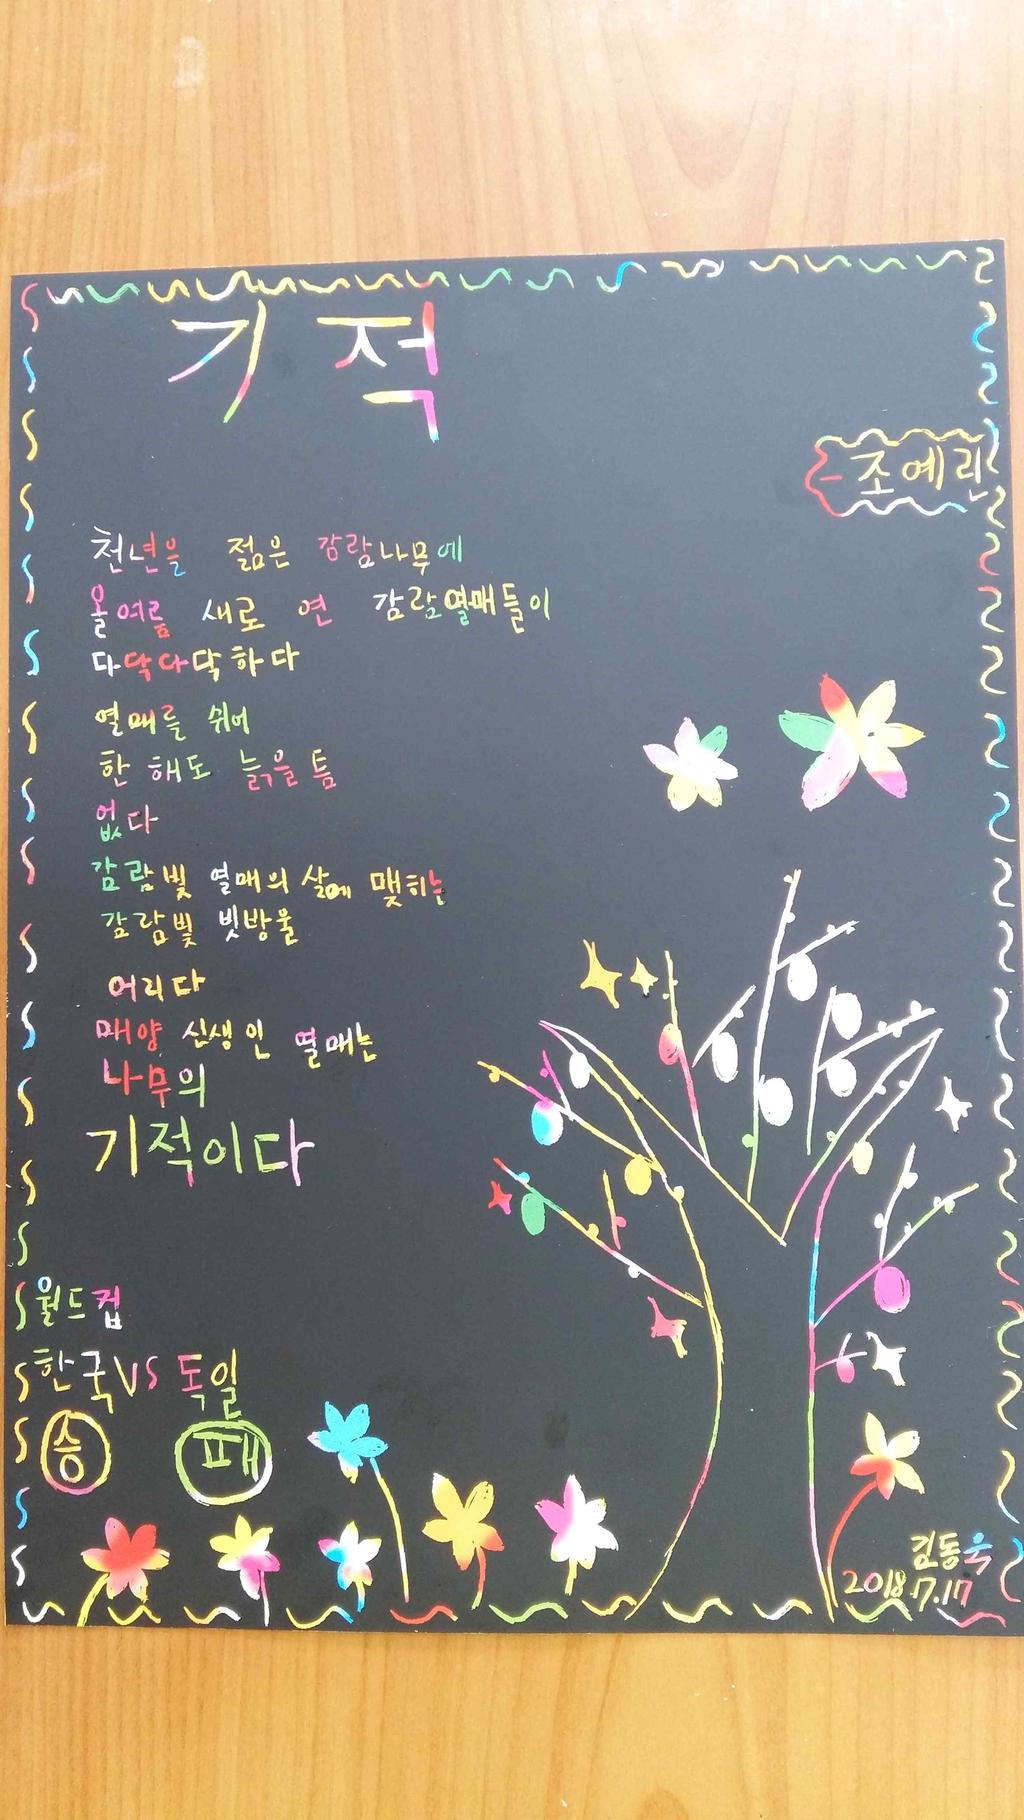 기적
- 조예린
천년을 젊은 감람나무에
올여름 새로 연 감람열매들이
다닥다닥하다
열매를 쉬어
한 해도 늙을 틈
없다
감람빛 열매의 살에 맺히는
감람빛 빗방울
어리다
매양 신생인 열매는
나무의
기적이다
월드컵
한국VS독일
승 패
김동욱
2018.7.17